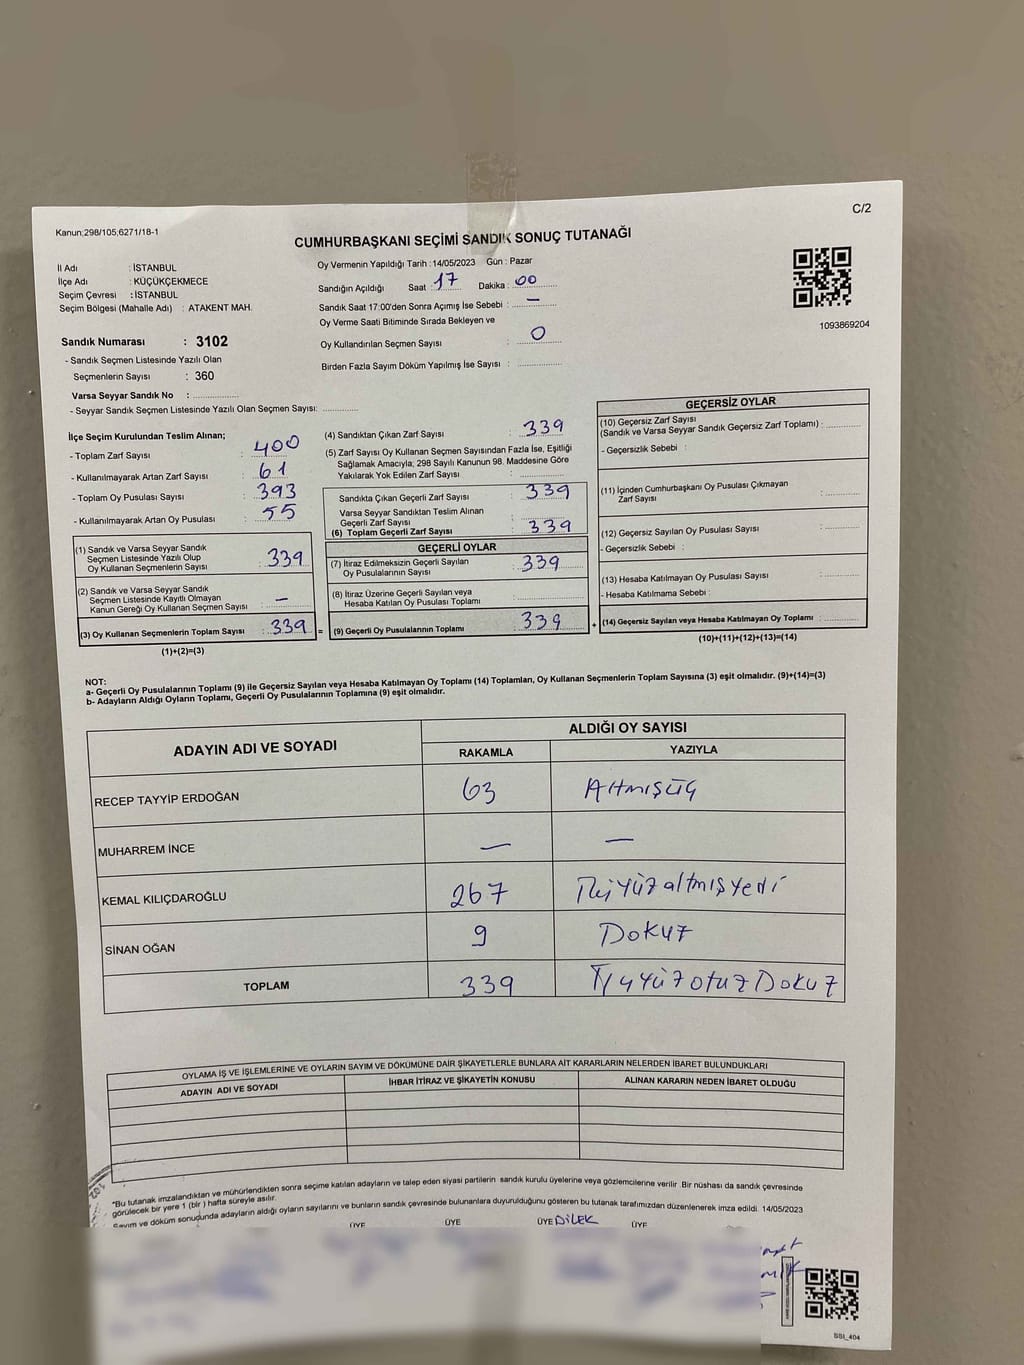 C/2
Kanun;298/105;6271/18-1
CUMHURBAŞKANI SEÇİMİ SANDIK SONUÇ TUTANAĞI
İl Adı : İSTANBUL
İlçe Adı : KÜÇÜKÇEKMECE
Seçim Çevresi : İSTANBUL
Seçim Bölgesi (Mahalle Adı) : ATAKENT MAH.
Oy Vermenin Yapıldığı Tarih : 14/05/2023 Gün : Pazar
Sandığın Açıldığı Saat : 17 Dakika : 00
Sandık Saat 17:00'den Sonra Açımış İse Sebebi : —
Oy Verme Saati Bitiminde Sırada Bekleyen ve
Oy Kullandırılan Seçmen Sayısı : 0
Birden Fazla Sayım Döküm Yapılmış İse Sayısı :
1093869204
Sandık Numarası : 3102
- Sandık Seçmen Listesinde Yazılı Olan
Seçmenlerin Sayısı : 360
Varsa Seyyar Sandık No :
- Seyyar Sandık Seçmen Listesinde Yazılı Olan Seçmen Sayısı:
İlçe Seçim Kurulundan Teslim Alınan;
- Toplam Zarf Sayısı : 400
- Kullanılmayarak Artan Zarf Sayısı : 61
- Toplam Oy Pusulası Sayısı : 393
- Kullanılmayarak Artan Oy Pusulası : 55
(1) Sandık ve Varsa Seyyar Sandık
Seçmen Listesinde Yazılı Olup
Oy Kullanan Seçmenlerin Sayısı : 339
(2) Sandık ve Varsa Seyyar Sandık
Seçmen Listesinde Kayıtlı Olmayan
Kanun Gereği Oy Kullanan Seçmen Sayısı : —
(3) Oy Kullanan Seçmenlerin Toplam Sayısı : 339 =
(1)+(2)=(3)
(4) Sandıktan Çıkan Zarf Sayısı : 339
(5) Zarf Sayısı Oy Kullanan Seçmen Sayısından Fazla İse, Eşitliği
Sağlamak Amacıyla; 298 Sayılı Kanunun 98. Maddesine Göre
Yakılarak Yok Edilen Zarf Sayısı :
Sandıkta Çıkan Geçerli Zarf Sayısı : 339
Varsa Seyyar Sandıktan Teslim Alınan
Geçerli Zarf Sayısı :
(6) Toplam Geçerli Zarf Sayısı : 339
GEÇERLİ OYLAR
(7) İtiraz Edilmeksizin Geçerli Sayılan
Oy Pusulalarının Sayısı : 339
(8) İtiraz Üzerine Geçerli Sayılan veya
Hesaba Katılan Oy Pusulası Toplamı :
(9) Geçerli Oy Pusulalarının Toplamı : 339 +
GEÇERSİZ OYLAR
(10) Geçersiz Zarf Sayısı
(Sandık ve Varsa Seyyar Sandık Geçersiz Zarf Toplamı) :
- Geçersizlik Sebebi :
(11) İçinden Cumhurbaşkanı Oy Pusulası Çıkmayan
Zarf Sayısı :
(12) Geçersiz Sayılan Oy Pusulası Sayısı :
- Geçersizlik Sebebi :
(13) Hesaba Katılmayan Oy Pusulası Sayısı :
- Hesaba Katılmama Sebebi :
(14) Geçersiz Sayılan veya Hesaba Katılmayan Oy Toplamı :
(10)+(11)+(12)+(13)=(14)
NOT:
a- Geçerli Oy Pusulalarının Toplamı (9) ile Geçersiz Sayılan veya Hesaba Katılmayan Oy Toplamı (14) Toplamları, Oy Kullanan Seçmenlerin Toplam Sayısına (3) eşit olmalıdır. (9)+(14)=(3)
b- Adayların Aldığı Oyların Toplamı, Geçerli Oy Pusulalarının Toplamına (9) eşit olmalıdır.
ADAYIN ADI VE SOYADI
ALDIĞI OY SAYISI
RAKAMLA YAZIYLA
RECEP TAYYİP ERDOĞAN 63 Altmışüç
MUHARREM İNCE — —
KEMAL KILIÇDAROĞLU 267 İkiyüzaltmışyedi
SİNAN OĞAN 9 Dokuz
TOPLAM 339 Üçyüzotuz Dokuz
OYLAMA İŞ VE İŞLEMLERİNE VE OYLARIN SAYIM VE DÖKÜMÜNE DAİR ŞİKAYETLERLE BUNLARA AİT KARARLARIN NELERDEN İBARET BULUNDUKLARI
ADAYIN ADI VE SOYADI İHBAR İTİRAZ VE ŞİKAYETİN KONUSU ALINAN KARARIN NEDEN İBARET OLDUĞU
*Bu tutanak imzalandıktan ve mühürlendikten sonra seçime katılan adayların ve talep eden siyasi partilerin sandık kurulu üyelerine veya gözlemcilerine verilir. Bir nüshası da sandık çevresinde
görülecek bir yere 1 (bir) hafta süreyle asılır.
Sayım ve döküm sonucunda adayların aldığı oyların sayılarını ve bunların sandık çevresinde bulunanlara duyurulduğunu gösteren bu tutanak tarafımızdan düzenlenerek imza edildi. 14/05/2023
ÜYE ÜYE ÜYE DİLEK ÜYE
SSI_404